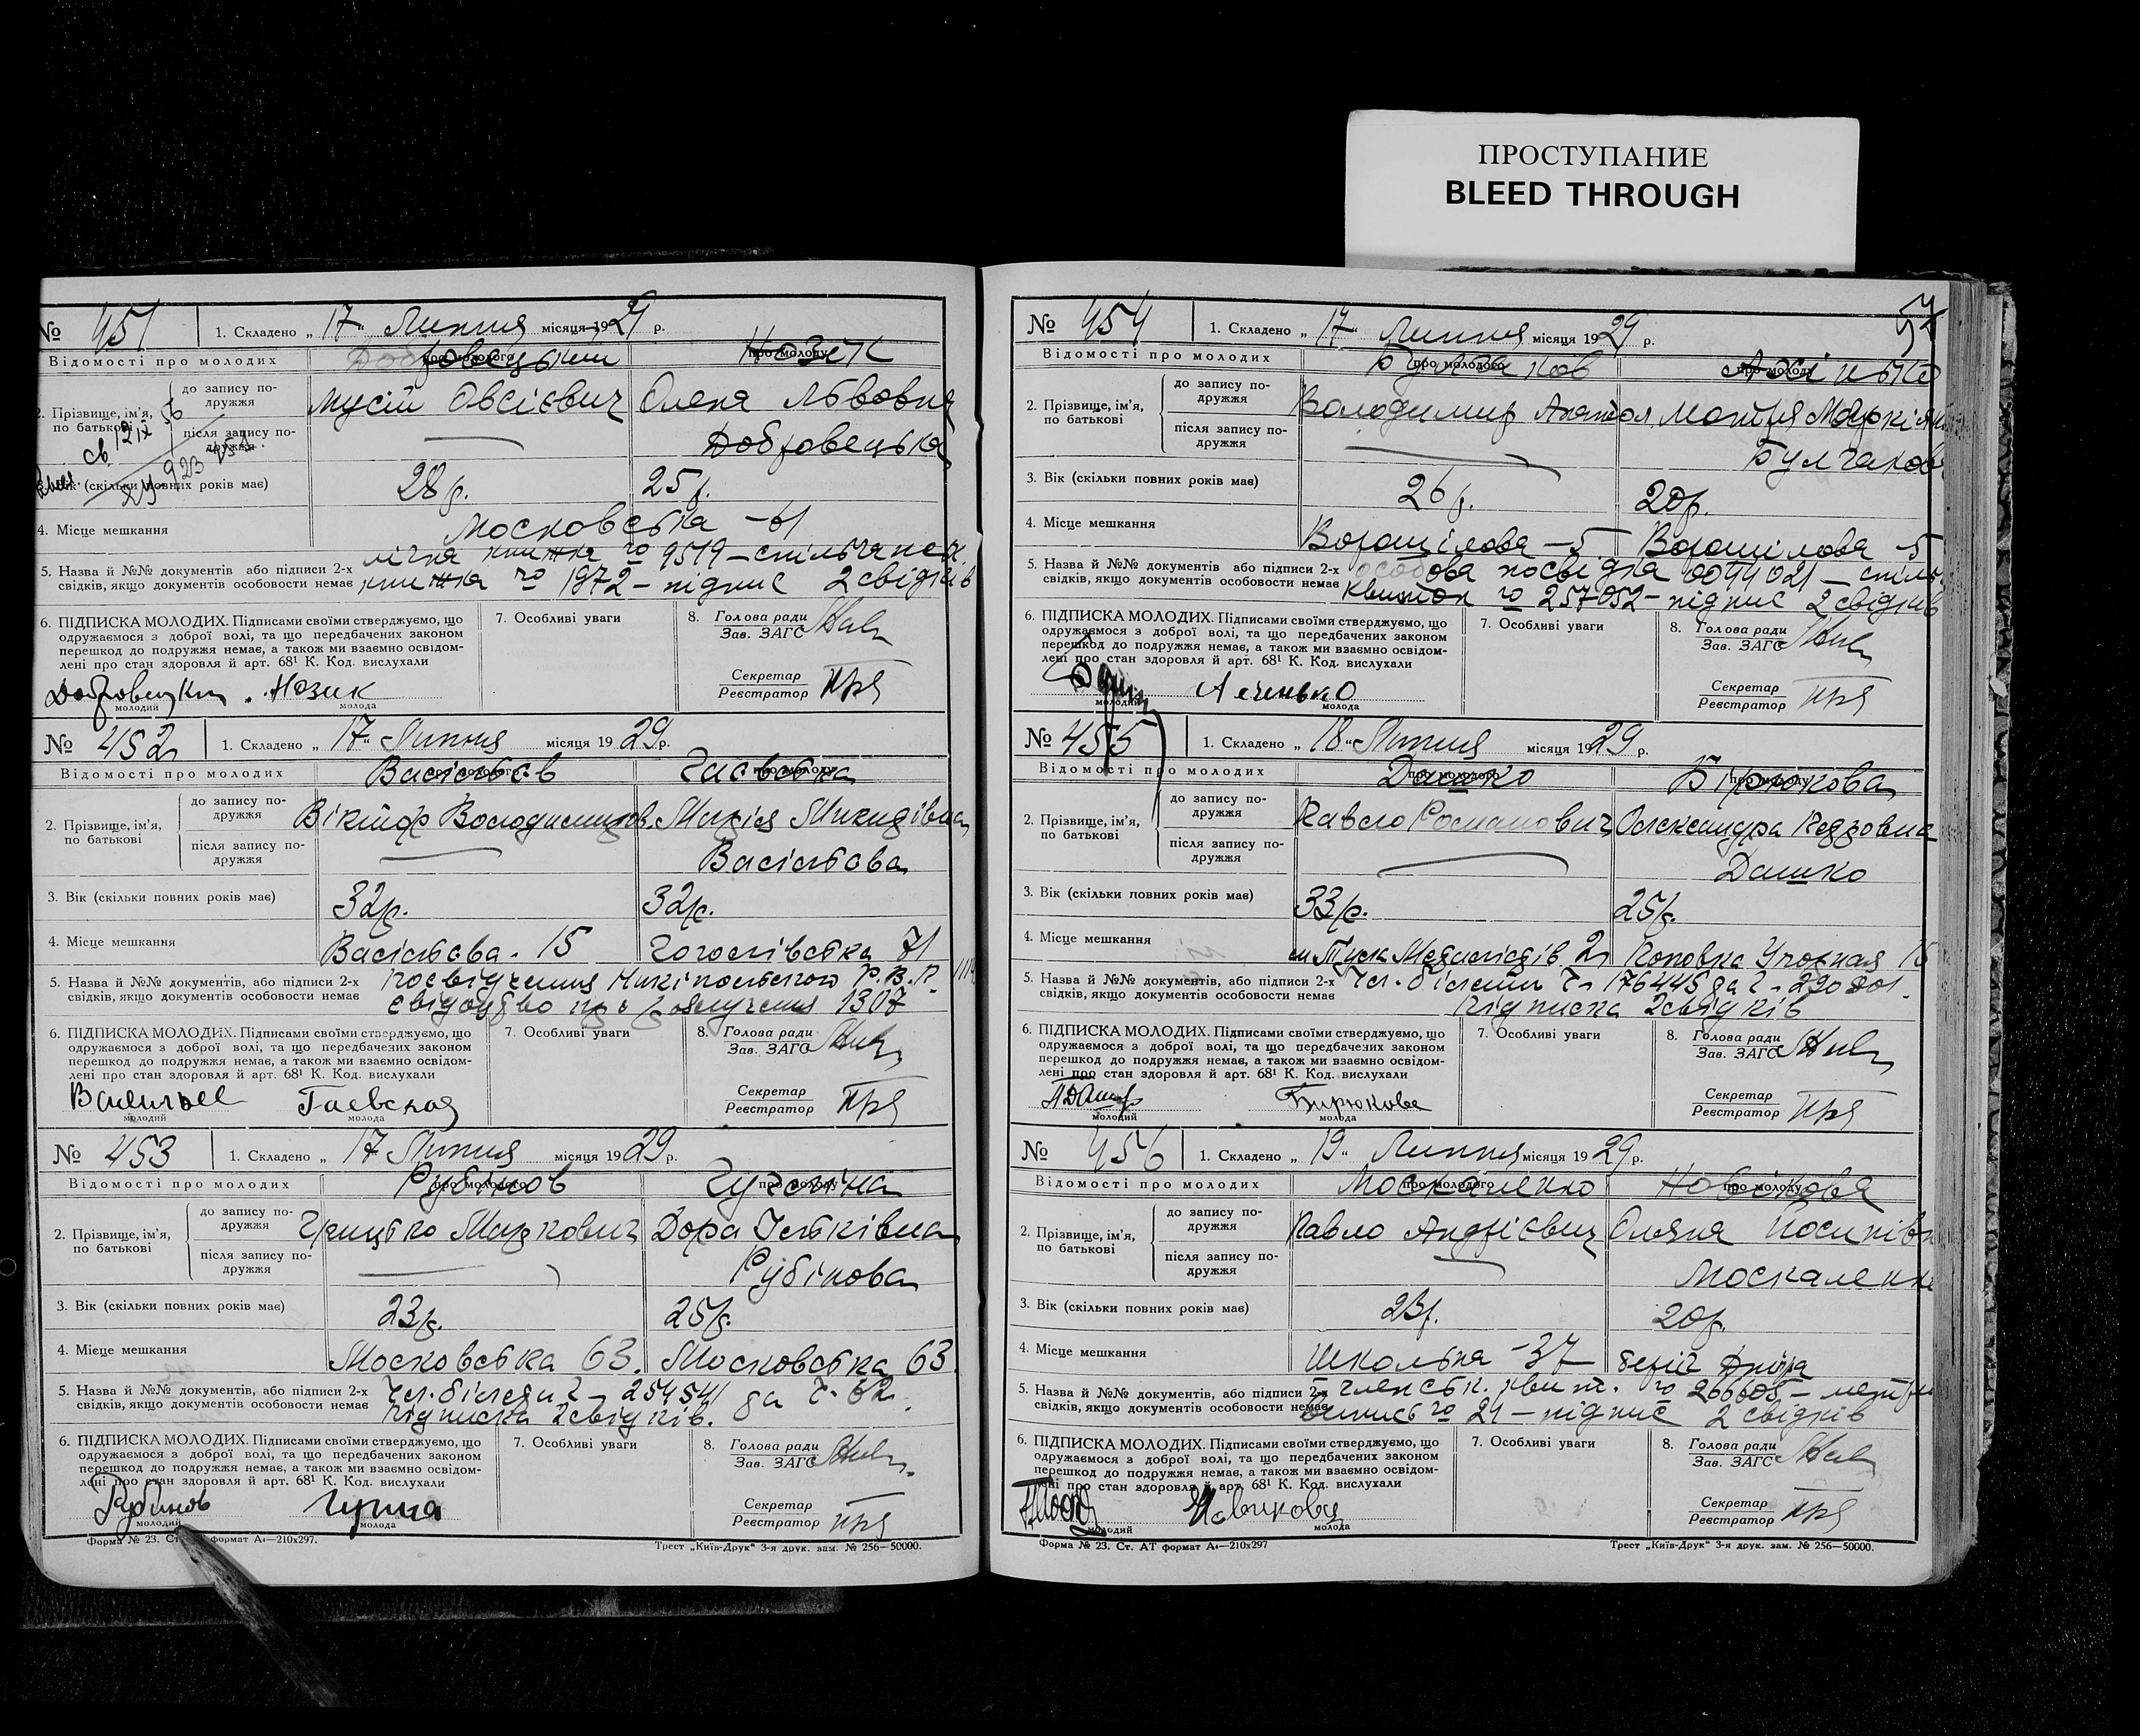 ПРОСТУПАНИЕ
BLEED THROUGH
№ 451 1. Складено „ 17 " Липня місяця 1929 р.
Відомості про молодих про молодого про молоду
Добровецький Нозік
2. Прізвище, ім'я, по батькові
до запису подружжя Мусій Овсієвич Олена Львовна
після запису подружжя — Добровецька
3. Вік (скільки повних років має) 28 р. 25 р.
4. Місце мешкання Московська – 61
5. Назва й №№ документів або підписи 2-х книжка № 9519 –
свідків, якщо документів особовости немає книжка № 1972 – підпис 2 свідків
6. ПІДПИСКА МОЛОДИХ. Підписами своїми стверджуємо, що
одружаємося з доброї волі, та що передбачених законом
перешкод до подружжя немає, а також ми взаємно освідом-
лені про стан здоровля й арт. 68¹ К. Код. вислухали
7. Особливі уваги
8. Голова ради
Зав. ЗАГС
Секретар
Реєстратор
Нозик
молодий молода
№ 452 1. Складено „ 17 " Липня місяця 1929 р.
Відомості про молодих про молодого про молоду
Васільєв Гаєвська
2. Прізвище, ім'я, по батькові
до запису подружжя Віктор Володимиров. Марія
після запису подружжя — Васільєва
3. Вік (скільки повних років має) 32 р. 32 р.
4. Місце мешкання Васільєва. 15 71
5. Назва й №№ документів, або підписи 2-х посвідчення Нікіпольського Р.В.К.
свідків, якщо документів особовости немає свідоцтво про 1307
6. ПІДПИСКА МОЛОДИХ. Підписами своїми стверджуємо, що
одружаємося з доброї волі, та що передбачених законом
перешкод до подружжя немає, а також ми взаємно освідом-
лені про стан здоровля й арт. 68¹ К. Код. вислухали
7. Особливі уваги
8. Голова ради
Зав. ЗАГС
Секретар
Реєстратор
Васильев Гаевская
молодий молода
№ 453 1. Складено „ 17 Липня місяця 1929 р.
Відомості про молодих про молодого про молоду
Рубінов
2. Прізвище, ім'я, по батькові
до запису подружжя Грицько Маркович Дора Ільківна
після запису подружжя — Рубінова
3. Вік (скільки повних років має) 23 р. 25 р.
4. Місце мешкання Московська 63. Московська 63.
5. Назва й №№ документів, або підписи 2-х Чл. білети
свідків, якщо документів особовости немає підписка 2 свідків.
6. ПІДПИСКА МОЛОДИХ. Підписами своїми стверджуємо, що
одружаємося з доброї волі, та що передбачених законом
перешкод до подружжя немає, а також ми взаємно освідом-
лені про стан здоровля й арт. 68¹ К. Код. вислухали
7. Особливі уваги
8. Голова ради
Зав. ЗАГС
Секретар
Реєстратор
Рубинов
молодий молода
Форма № 23. Ст. АТ формат А₄—210х297. Трест „Київ-Друк" 3-я друк. зам. № 256—50000.
№ 454 1. Складено „ 17 " Липня місяця 1929 р.
Відомості про молодих про молодого про молоду
2. Прізвище, ім'я, по батькові
до запису подружжя Володимир Анатол. Мотря
після запису подружжя —
3. Вік (скільки повних років має) 26 р. 20 р.
4. Місце мешкання Ворошілова – 5 Ворошілова – 5
5. Назва й №№ документів або підписи 2-х особова посвідка
свідків, якщо документів особовости немає квиток № 257052 – підпис 2 свідків
6. ПІДПИСКА МОЛОДИХ. Підписами своїми стверджуємо, що
одружаємося з доброї волі, та що передбачених законом
перешкод до подружжя немає, а також ми взаємно освідом-
лені про стан здоровля й арт. 68¹ К. Код. вислухали
7. Особливі уваги
8. Голова ради
Зав. ЗАГС
Секретар
Реєстратор
молодий молода
№ 455 1. Складено „ 18 " Липня місяця 1929 р.
Відомості про молодих про молодого про молоду
Дашко Бірюкова
2. Прізвище, ім'я, по батькові
до запису подружжя Павло Романович Олександра
після запису подружжя — Дашко
3. Вік (скільки повних років має) 33 р. 25 р.
4. Місце мешкання 2
5. Назва й №№ документів, або підписи 2-х Чл. білети
свідків, якщо документів особовости немає підписка 2 свідків
6. ПІДПИСКА МОЛОДИХ. Підписами своїми стверджуємо, що
одружаємося з доброї волі, та що передбачених законом
перешкод до подружжя немає, а також ми взаємно освідом-
лені про стан здоровля й арт. 68¹ К. Код. вислухали
7. Особливі уваги
8. Голова ради
Зав. ЗАГС
Секретар
Реєстратор
Бирюкова
молодий молода
№ 456 1. Складено „ 19 " Липня місяця 1929 р.
Відомості про молодих про молодого про молоду
Москаленко Новікова
2. Прізвище, ім'я, по батькові
до запису подружжя Павло Андрієвич
після запису подружжя — Москаленко
3. Вік (скільки повних років має) 23 р. 20 р.
4. Місце мешкання Школьна – 37 беріг Дніпра
5. Назва й №№ документів, або підписи 2-х членськ. квит. №
свідків, якщо документів особовости немає № 24 – підпис 2 свідків
6. ПІДПИСКА МОЛОДИХ. Підписами своїми стверджуємо, що
одружаємося з доброї волі, та що передбачених законом
перешкод до подружжя немає, а також ми взаємно освідом-
лені про стан здоровля й арт. 68¹ К. Код. вислухали
7. Особливі уваги
8. Голова ради
Зав. ЗАГС
Секретар
Реєстратор
молодий молода
Форма № 23. Ст. АТ формат А₄—210х297 Трест „Київ-Друк" 3-я друк. зам. № 256—50000.